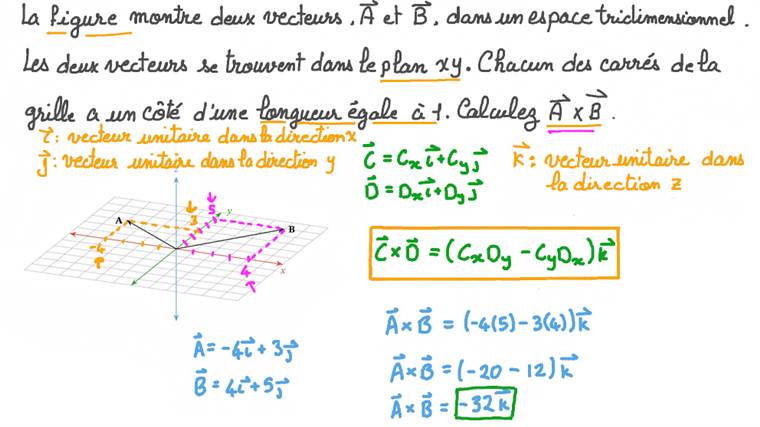 La figure montre deux vecteurs, A⃗ et B⃗, dans un espace tridimensionnel.
Les deux vecteurs se trouvent dans le plan xy. Chacun des carrés de la
grille a un côté d'une longueur égale à 1. Calculez A⃗ × B⃗.
i⃗: vecteur unitaire dans la direction x
j⃗: vecteur unitaire dans la direction y
C⃗ = Cₓi⃗ + Cᵧj⃗
D⃗ = Dₓi⃗ + Dᵧj⃗
k⃗: vecteur unitaire dans
la direction z
z
A
3
5
y
B
-4
4
x
C⃗ × D⃗ = (CₓDᵧ - CᵧDₓ)k⃗
A⃗ = -4i⃗ + 3j⃗
B⃗ = 4i⃗ + 5j⃗
A⃗ × B⃗ = (-4(5) - 3(4))k⃗
A⃗ × B⃗ = (-20 - 12)k⃗
A⃗ × B⃗ = -32k⃗